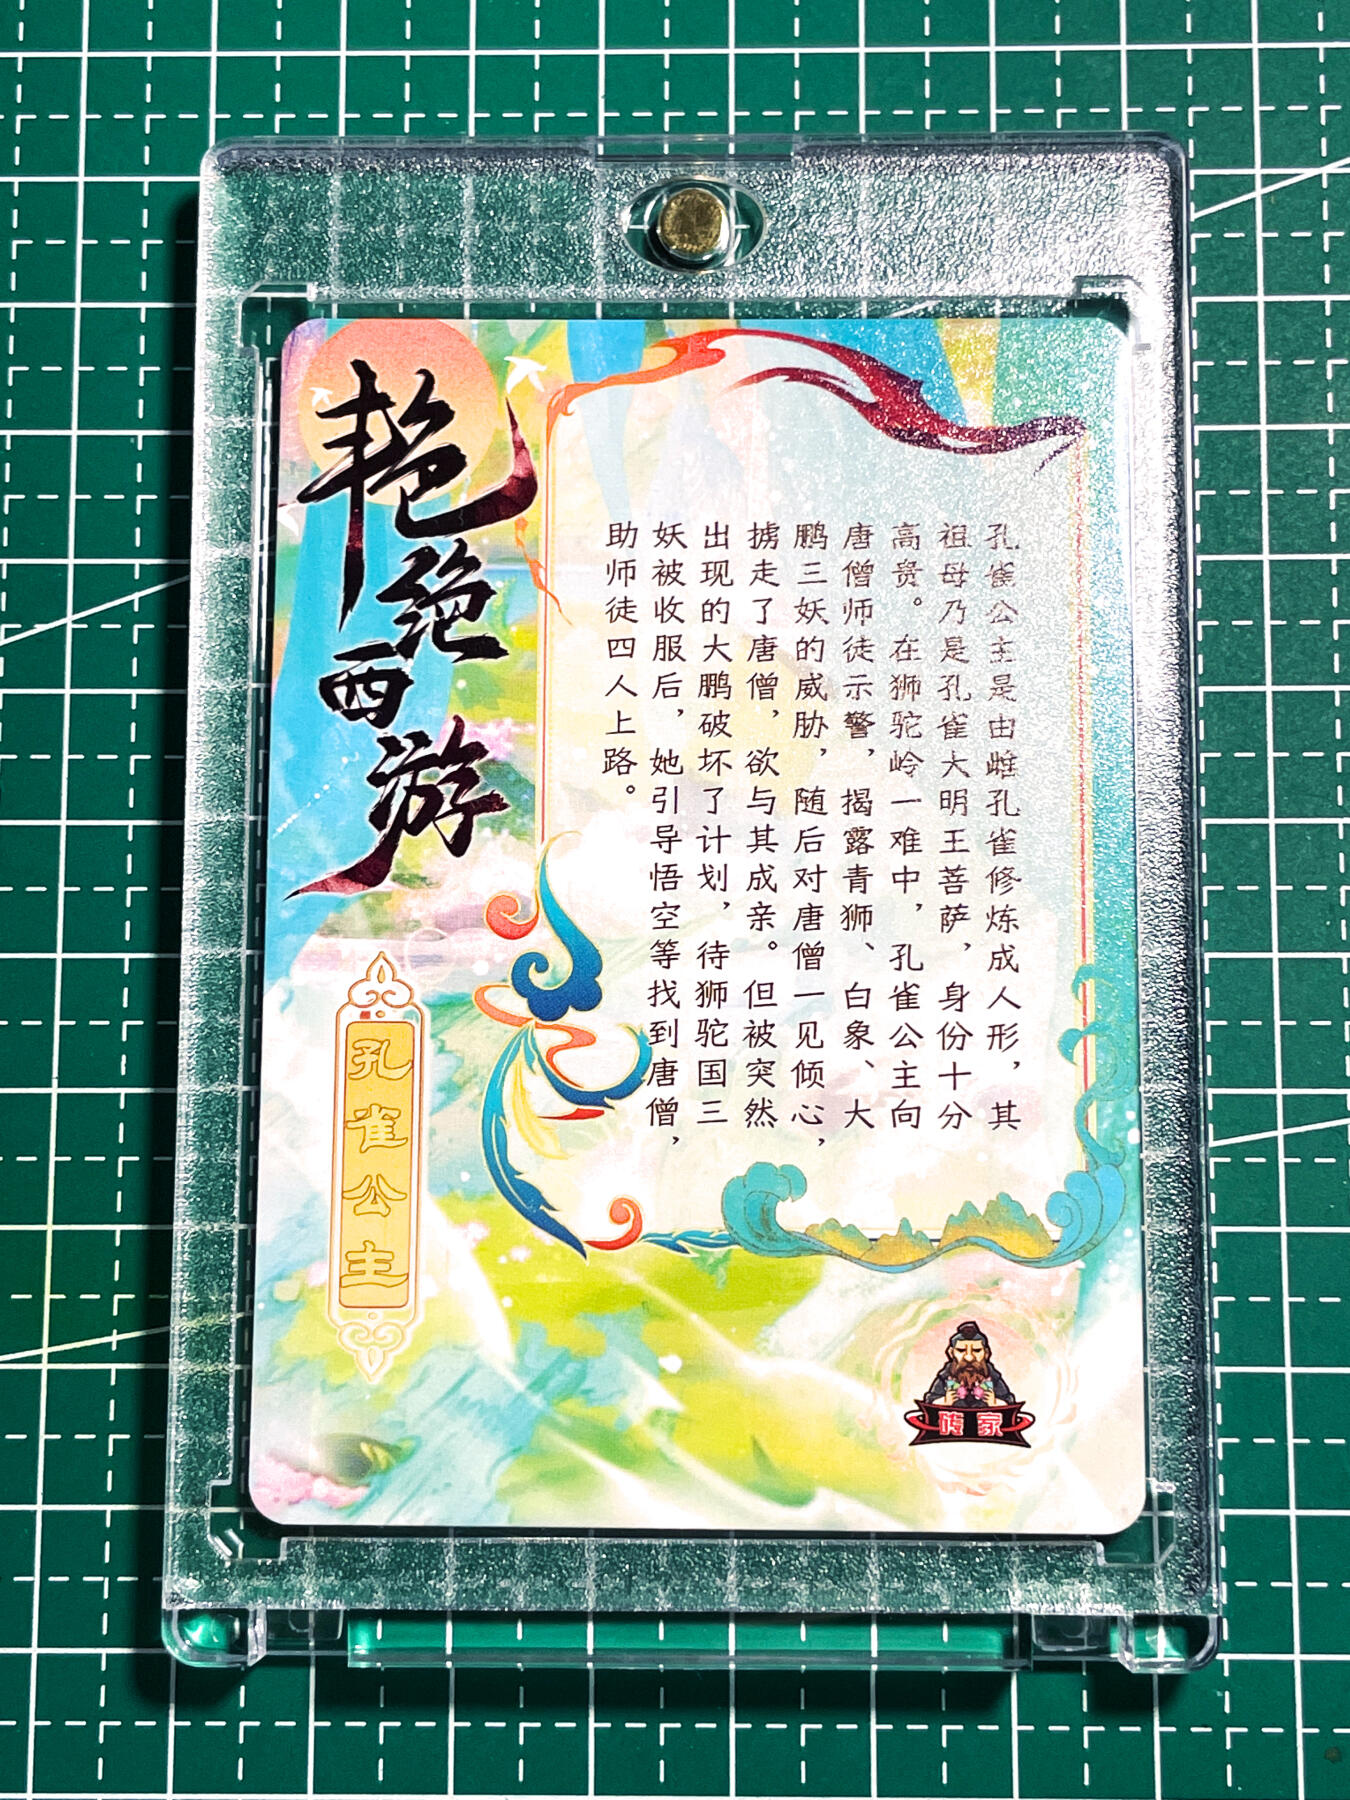 艳绝西游
孔雀公主
孔雀公主是由雌孔雀修炼成人形，其
祖母乃是孔雀大明王菩萨，身份十分
高贵。在狮驼岭一难中，孔雀公主向
唐僧师徒示警，揭露青狮、白象、大
鹏三妖的威胁，随后对唐僧一见倾心，
掳走了唐僧，欲与其成亲。但被突然
出现的大鹏破坏了计划，待狮驼国三
妖被收服后，她引导悟空等找到唐僧，
助师徒四人上路。
砖家